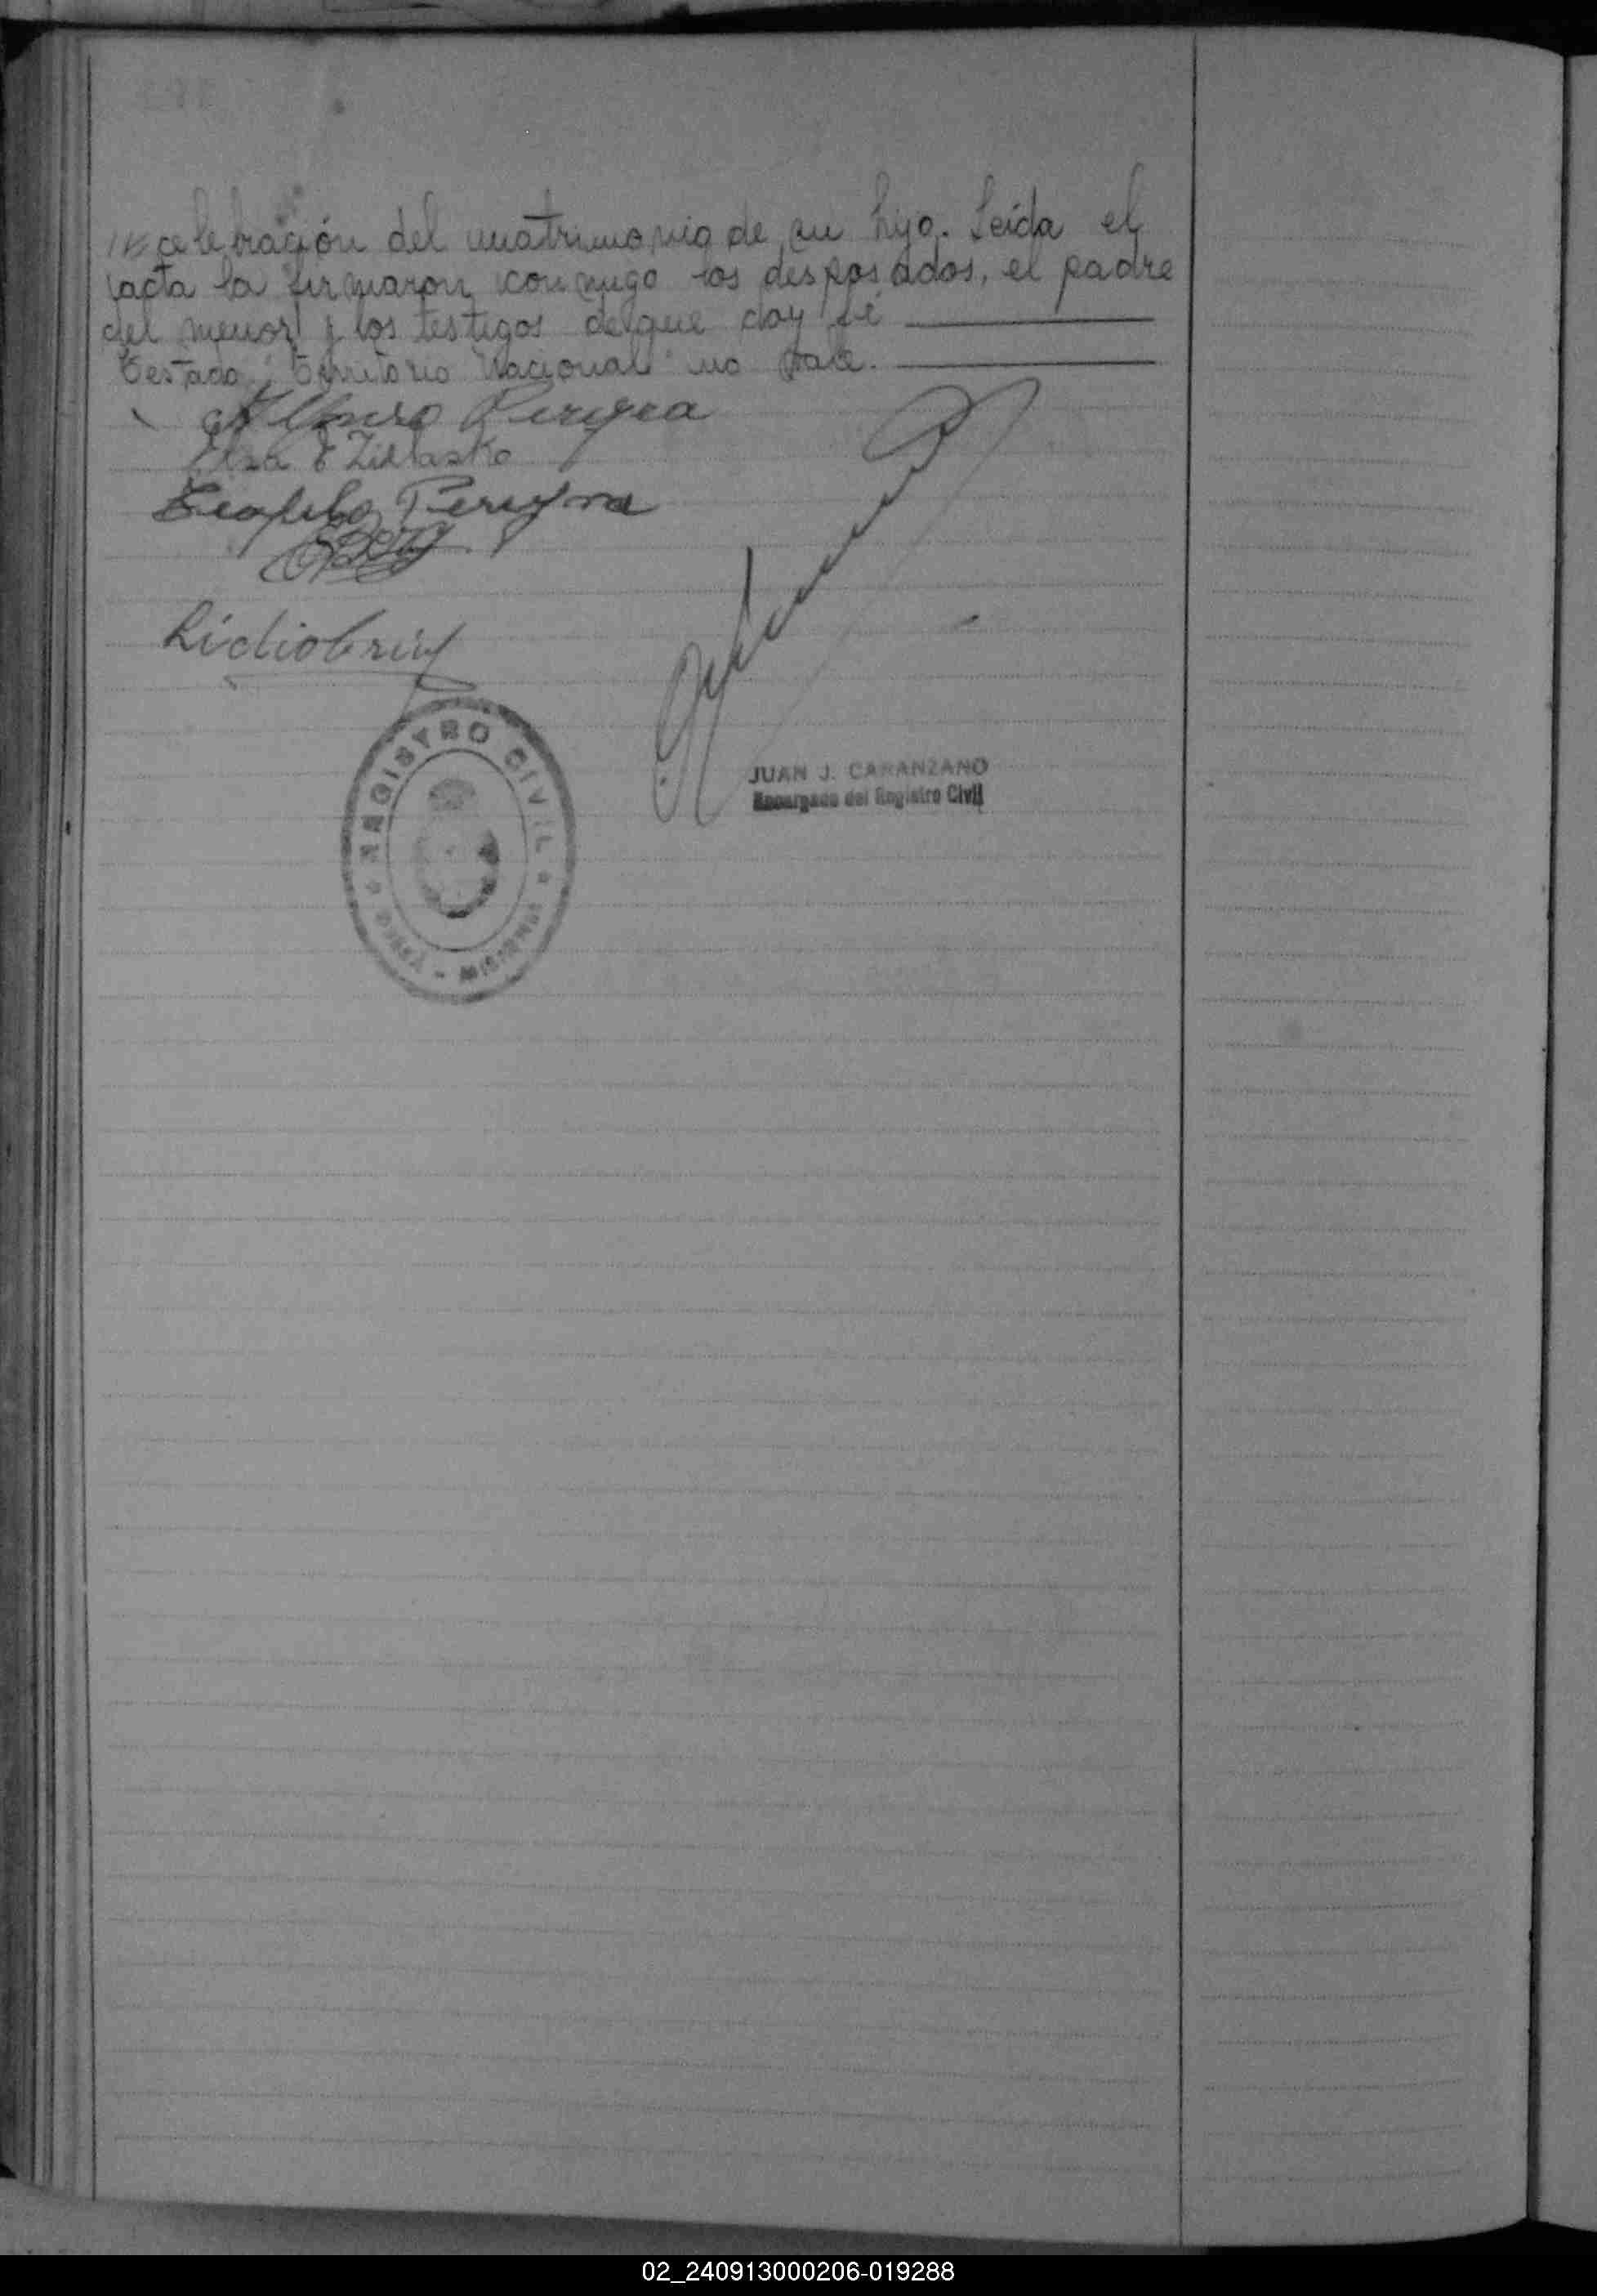 celebración del matrimonio de su hijo. Leída el
acta la firmaron conmigo los desposados, el padre
del menor y los testigos de que doy fé
Testado: "Territorio Nacional" no vale.
Pereyra
Elsa E Zillasko
Teofilo Pereyra
Lidio
REGISTRO CIVIL
JUAN J. CARANZANO
Encargado del Registro Civil
02_240913000206-019288